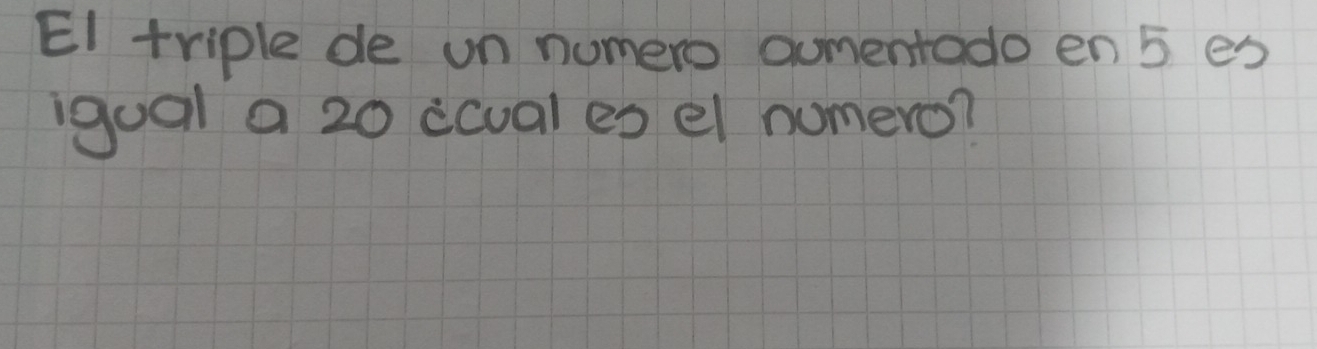 El triple de un numero aumentado en 5 es
igual a 20 ¿cual es el numero?